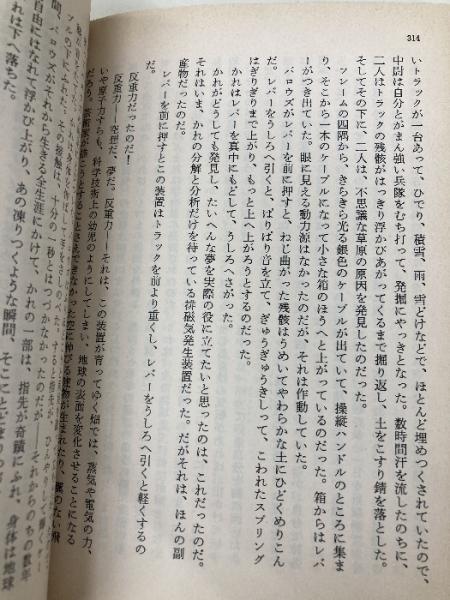 314
いトラックが一台あって、ひでり、積雪、雨、雪どけなどで、ほとんど埋めつくされていたので、
中尉は自分とがまん強い兵隊をむち打って、発掘にやっきとなった。数時間汗を流したのちに、
二人はトラックの残骸がはっきり浮かびあがってくるまで掘り返し、土をこすり錆を落とした。
そしてその下に、二人は、不思議な草原の原因を発見したのだった。
フレームの四隅から、きらきら光る銀色のケーブルが出ていて、操縦ハンドルのところに集ま
り、そこから一本のケーブルになって小さな箱のほうへと上がっているのだった。箱からはレバ
ーがつき出ていた。眼に見える動力源はなかったのだが、それは作動していた。
バロウズがレバーを前に押すと、ねじ曲がった残骸はうめいてやわらかな土にひどくめりこん
だ。レバーをうしろへ引くと、ばりばり音を立て、ぎゅうぎゅうきしって、こわれたスプリング
はぎりぎりまで上がり、もっと上へ上がろうとするのだった。
かれはレバーを真中にもどして、うしろへさがった。
かれがどうしても発見し、たいへんな夢を実際の役に立てたいと思ったのは、これだったのだ。
それはいま、かれの分解と分析だけを待っている排磁気発生装置だった。だがそれは、ほんの副
産物だったのだ。
レバーを前に押すとこの装置はトラックを前より重くし、レバーをうしろへ引くと軽くするの
だ。
反重力だったのだ！
反重力――空想だ、夢だ。反重力――それは、この装置が育ってゆく畑では、蒸気や電気の力、
いや原子力すらも、科学技術上の幼児のようにしてしまい、地球の表面を変化させることになる
だろう。芸術家が
空に伸びる建物が生まれたり、翼のない飛
その
十分の一秒とはつづかなかったのだが
それからのちの数年
間、バロウズがそれから生きる全生涯にかけて、かれの一部は、指先が奇蹟にふれ、身体は地球
自由にはなれて浮かび上がり、あの凍りつくような瞬間、そこに
れは下へ落ちた。